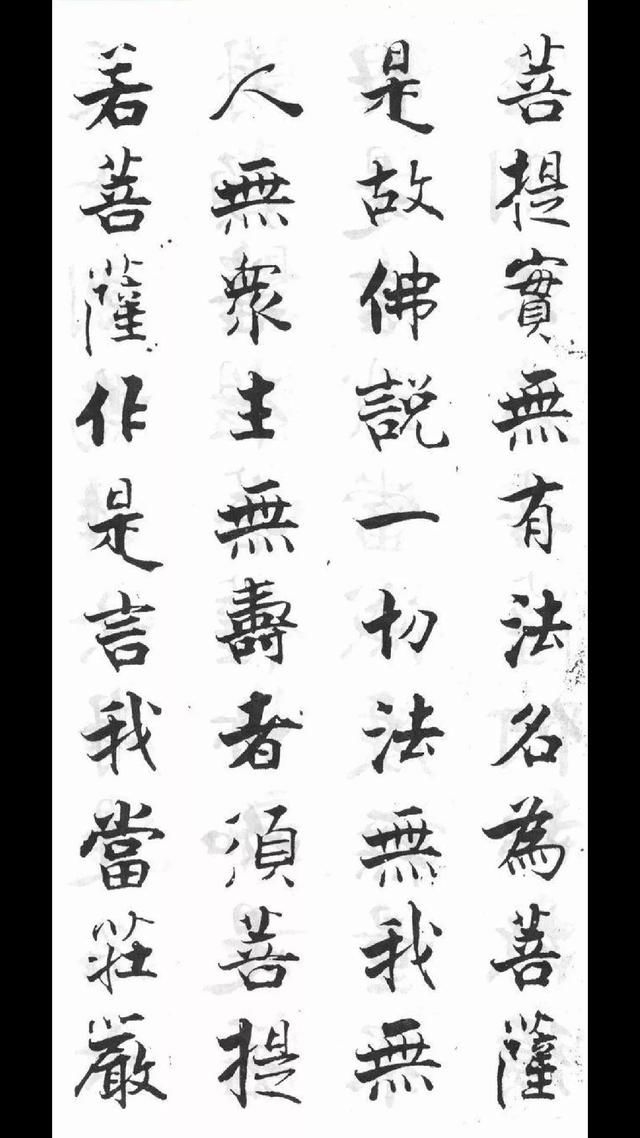 菩提實無有法名為菩薩
是故佛說一切法無我無
人無眾主無壽者須菩提
若菩薩作是言我當莊嚴